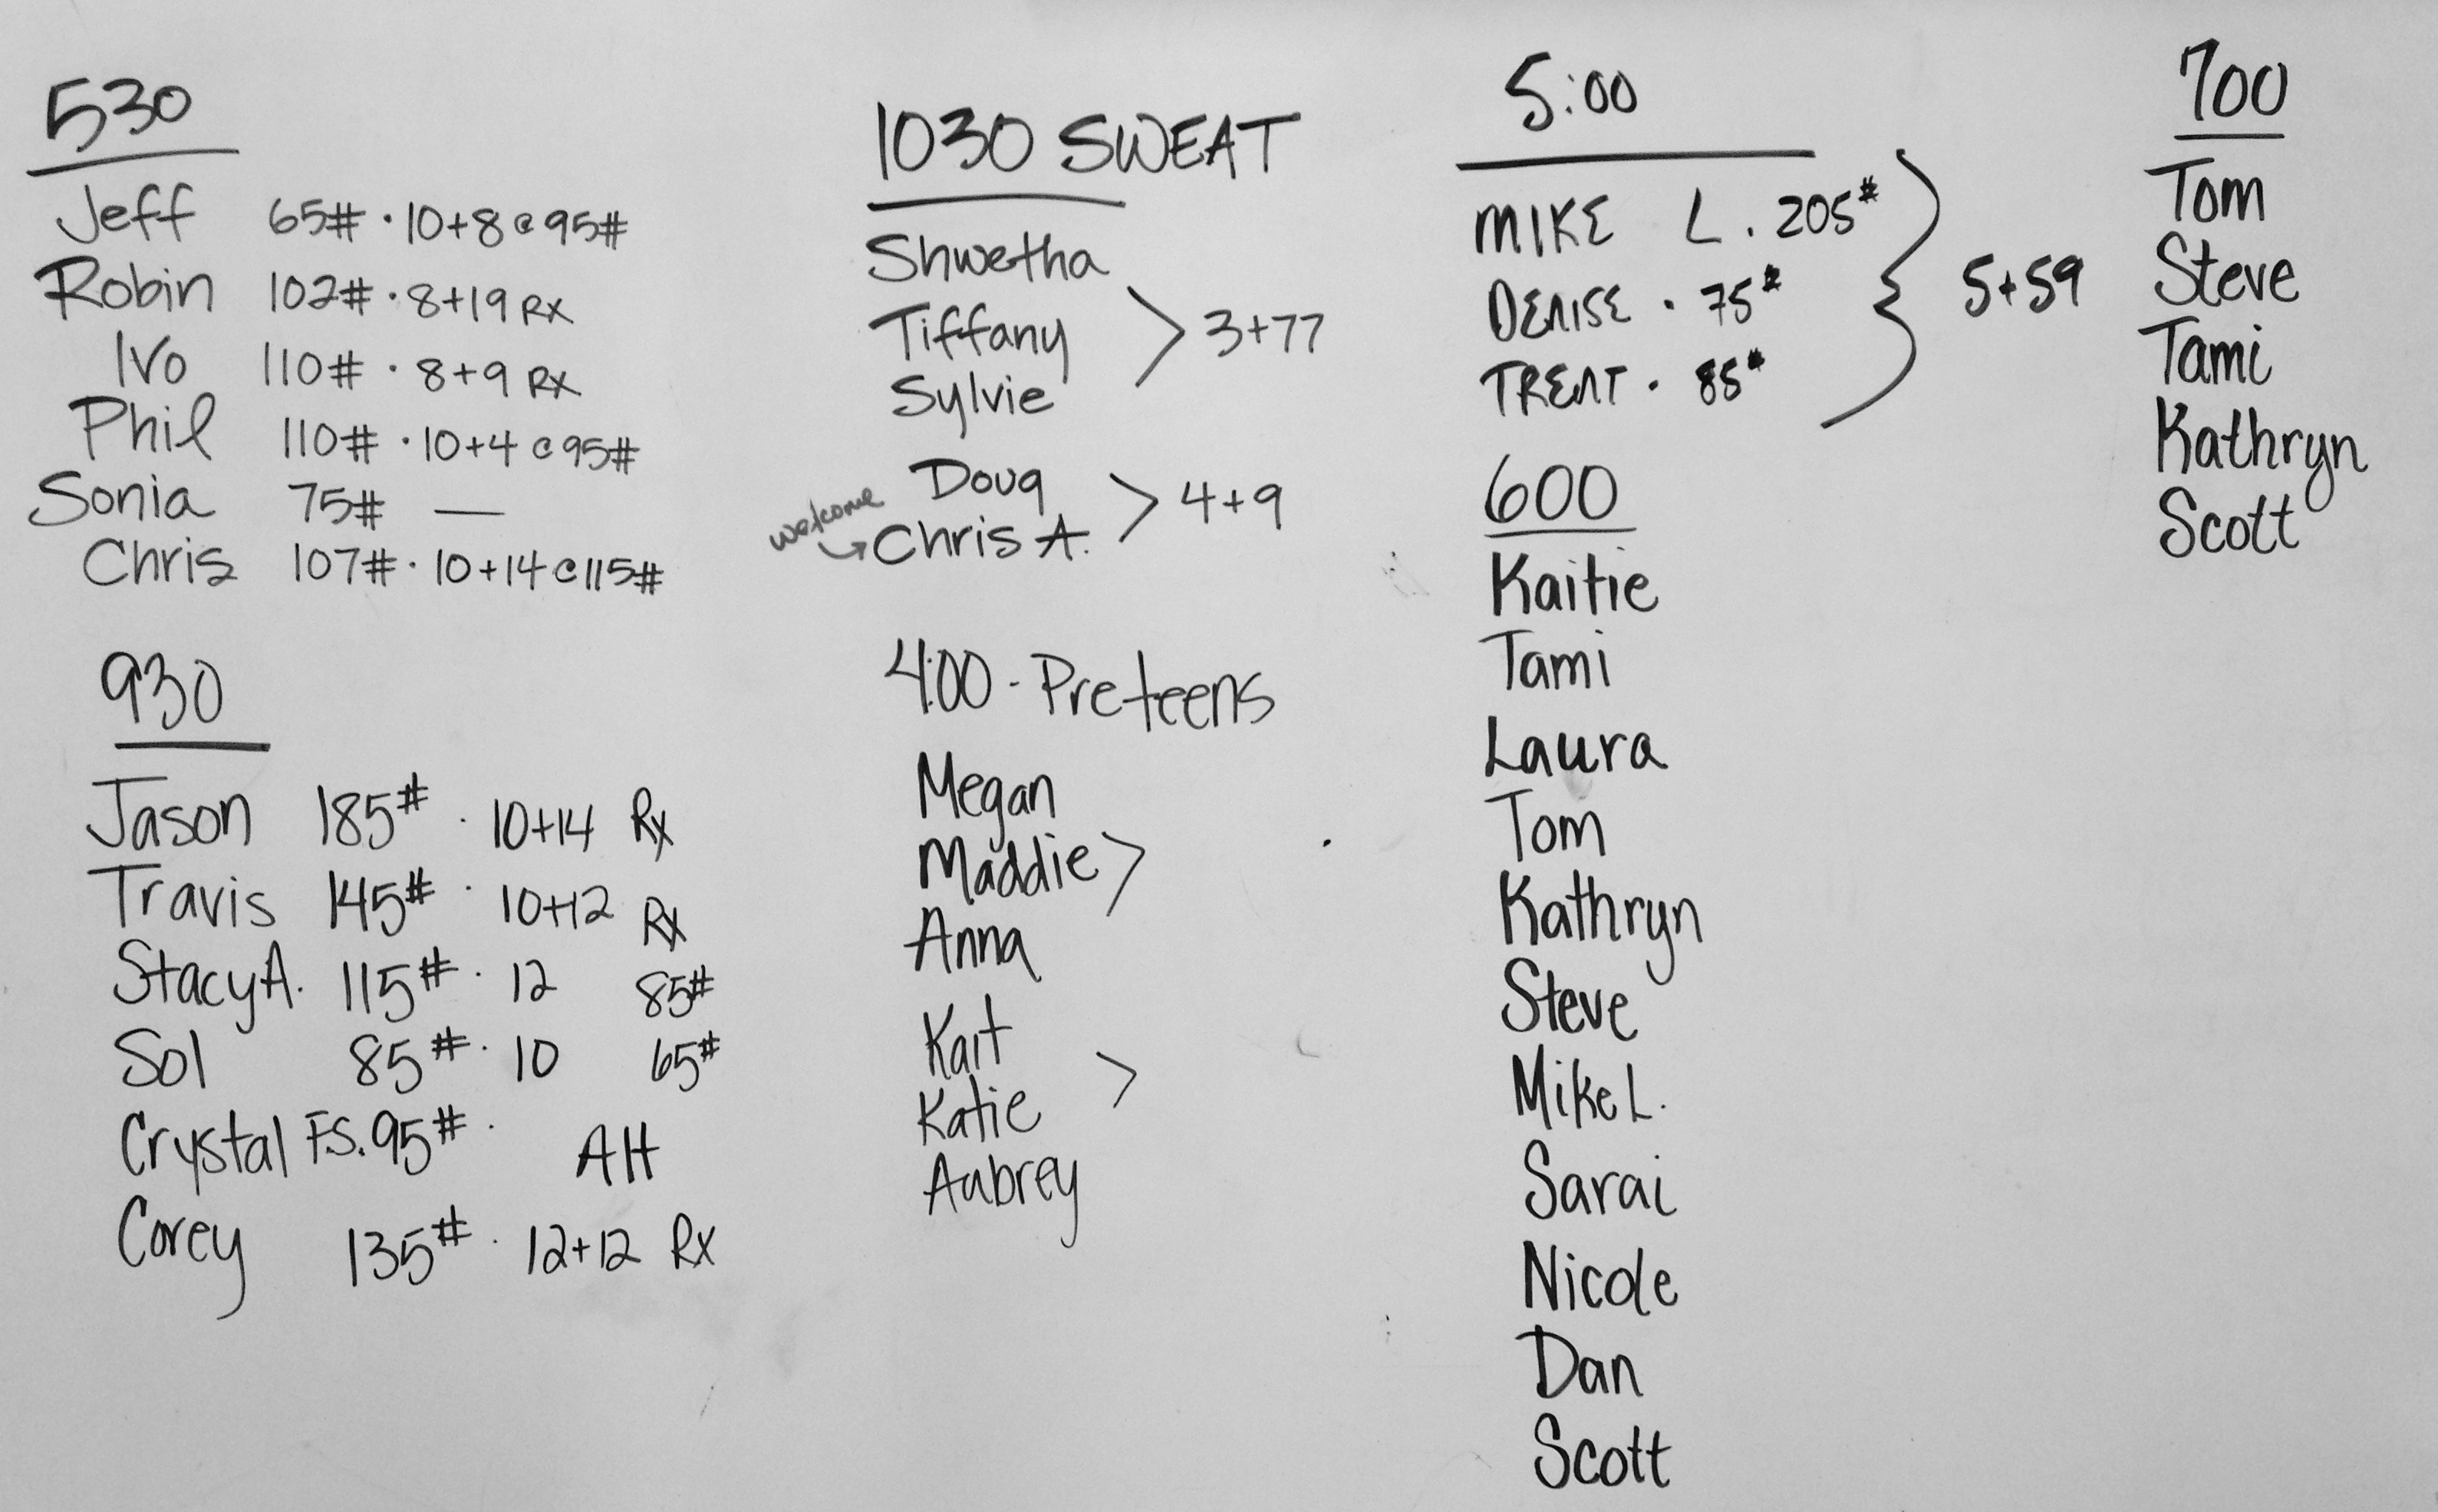 530
Jeff 65# · 10+8 @ 95#
Robin 102# · 8+19 RX
Ivo 110# · 8+9 RX
Phil 110# · 10+4 @ 95#
Sonia 75# —
Chris 107# · 10+14 @ 115#
930
Jason 185# · 10+14 Rx
Travis 145# · 10+12 Rx
Stacy A. 115# · 12 85#
Sol 85# · 10 65#
Crystal F.S. 95# · AH
Corey 135# · 12+12 Rx
1030 SWEAT
Shwetha
Tiffany > 3+77
Sylvie
Doug > 4+9
welcome
Chris A.
4:00 - Preteens
Megan
Maddie >
Anna
Kait
Katie >
Aubrey
5:00
MIKE L. 205#
DENISE · 75# } 5+59
TRENT · 85#
600
Kaitie
Tami
Laura
Tom
Kathryn
Steve
Mike L.
Sarai
Nicole
Dan
Scott
700
Tom
Steve
Tami
Kathryn
Scott